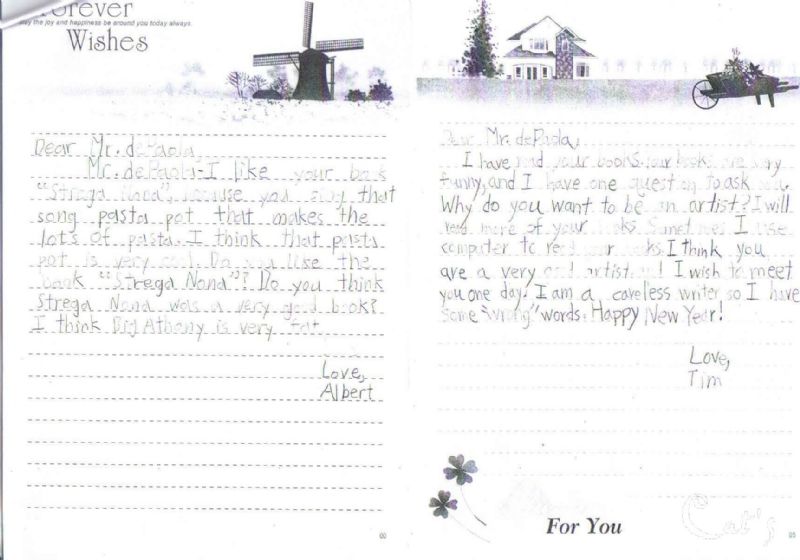 Forever
may the joy and happiness be around you today always.
Wishes
Dear Mr. dePaola,
Mr. dePaola-I like your book
"Strega Nona", because you sing that
song pasta pot that makes the
lot's of pasta. I think that pasta
pot is very cool. Do you like the
book "Strega Nona"? Do you think
Strega Nona was a very good book?
I think Big Athony is very fat.
Love,
Albert
00
Dear Mr. dePaola,
I have read your books. your book are very
funny, and I have one question to ask you.
Why do you want to be an artist? I will
read more of your books. Sometimes I use
computer to read your books. I think you
are a very good artist, and I wish to meet
you one day. I am a careless writer so I have
some "wrong" words. Happy New Year!
Love,
Tim
For You
Cat's
05